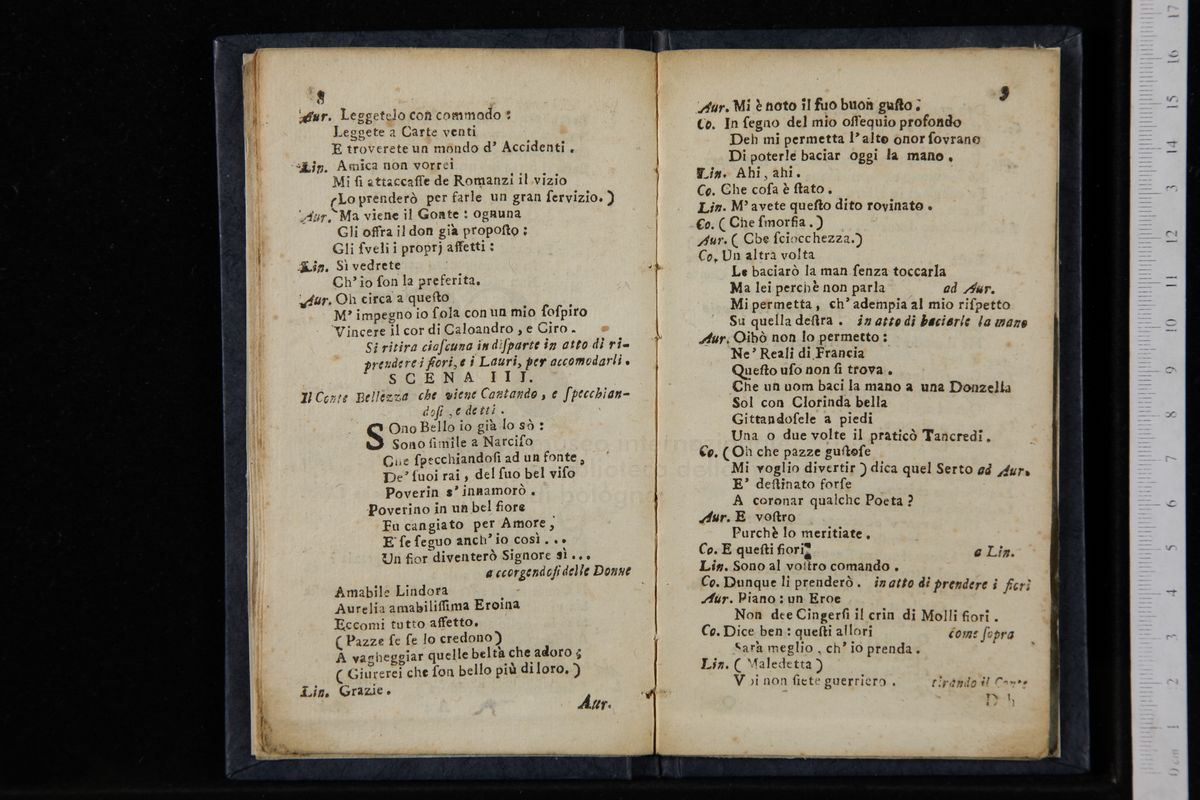 8
Aur. Leggetelo con commodo :
Leggete a Carte venti
E troverete un mondo d' Accidenti .
Lin. Amica non vorrei
Mi ſi attaccaſſe de Romanzi il vizio
(Lo prenderò per farle un gran ſervizio. )
Aur. Ma viene il Gonte : ognuna
Gli offra il don già propoſto :
Gli ſveli i proprj affetti :
Lin. Sì vedrete
Ch' io ſon la preferita.
Aur. Oh circa a queſto
M' impegno io ſola con un mio ſoſpiro
Vincere il cor di Caloandro , e Ciro .
Si ritira ciaſcuna in diſparte in atto di ri-
prendere i fiori, e i Lauri, per accomodarli .
SCENA III.
Il Conte Bellezza che viene Cantando , e ſpecchian-
doſi , e detti .
SOno Bello io già lo sò :
Sono ſimile a Narciſo
Che ſpecchiandoſi ad un fonte ,
De' ſuoi rai , del ſuo bel viſo
Poverin s' innamorò .
Poverino in un bel fiore
Fu cangiato per Amore ,
E ſe ſeguo anch' io così . . .
Un fior diventerò Signore sì . . .
accorgendoſi delle Donne
Amabile Lindora
Aurelia amabiliſſima Eroina
Eccomi tutto affetto.
( Pazze ſe ſe lo credono )
A vagheggiar quelle beltà che adoro ;
( Giurerei che ſon bello più di loro. )
Lin. Grazie .
Aur.
9
Aur. Mi è noto il ſuo buon guſto .
Co. In ſegno del mio oſſequio profondo
Deh mi permetta l' alto onor ſovrano
Di poterle baciar oggi la mano .
Lin. Ahi , ahi .
Co. Che coſa è ſtato .
Lin. M' avete queſto dito rovinato .
Co. ( Che ſmorfia . )
Aur. ( Che ſciocchezza.)
Co. Un altra volta
Le baciarò la man ſenza toccarla
Ma lei perchè non parla ad Aur.
Mi permetta , ch' adempia al mio riſpetto
Su quella deſtra . in atto di baciarle la mano
Aur. Oibò non lo permetto :
Ne' Reali di Francia
Queſto uſo non ſi trova .
Che un uom baci la mano a una Donzella
Sol con Clorinda bella
Gittandoſele a piedi
Una o due volte il praticò Tancredi .
Co. ( Oh che pazze guſtoſe
Mi voglio divertir ) dica quel Serto ad Aur.
E' deſtinato forſe
A coronar qualche Poeta ?
Aur. E voſtro
Purchè lo meritiate .
Co. E queſti fiori a Lin.
Lin. Sono al voſtro comando .
Co. Dunque li prenderò . in atto di prendere i fiori
Aur. Piano : un Eroe
Non dee Cingerſi il crin di Molli fiori .
Co. Dice ben : queſti allori come ſopra
Sarà meglio , ch' io prenda .
Lin. ( Maledetta )
Voi non ſiete guerriero . tirando il Conte